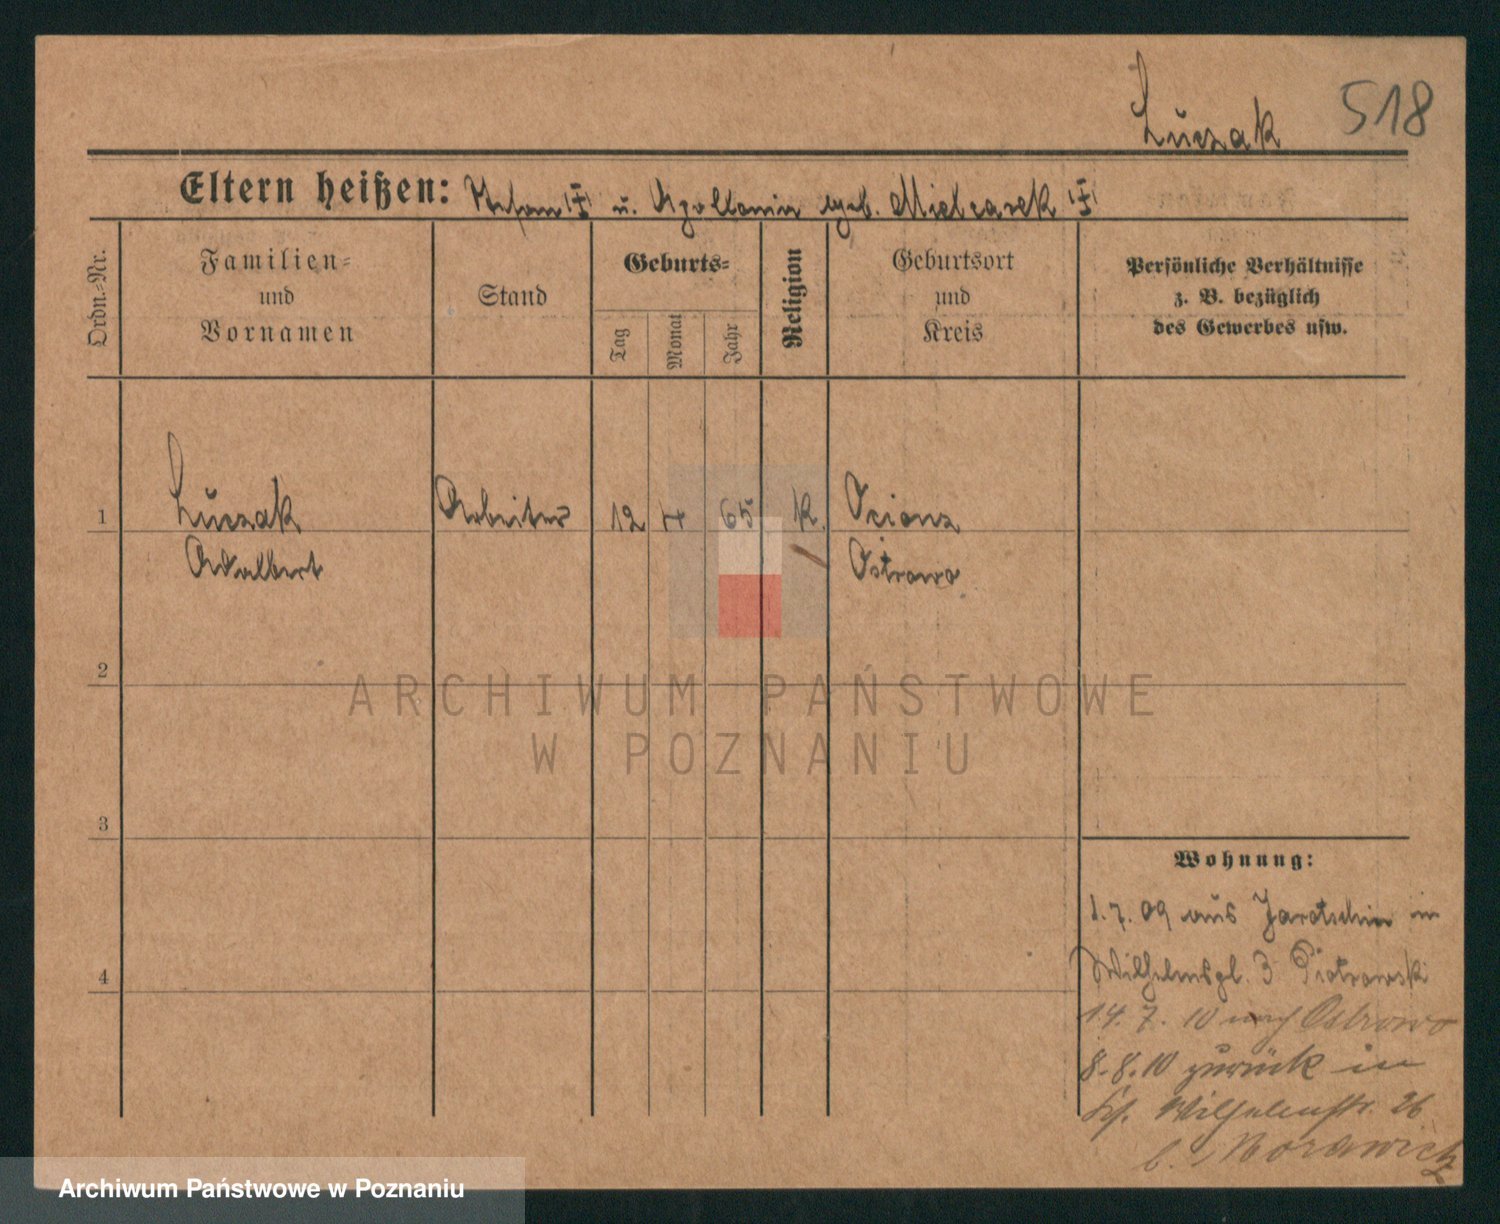 Łuczak 518
Eltern heißen: Stefan u. Apollonia geb. Mielcarek
Ordn.-Nr.
Familien-
und
Vornamen
Stand
Geburts-
Tag
Monat
Jahr
Religion
Geburtsort
und
Kreis
Persönliche Verhältnisse
z. B. bezüglich
des Gewerbes usw.
1 Łuczak Arbeiter 12 4 65 k.
Adalbert Ostrowo
2
ARCHIWUM PAŃSTWOWE
W POZNANIU
3
Wohnung:
1.7.09 aus Jarotschin in
Wilhelmspl. 3 Piotrowski
4
14.7.10 nach Ostrowo
8.8.10 zurück in
Wilhelmstr. 26
b. Morawicz
Archiwum Państwowe w Poznaniu